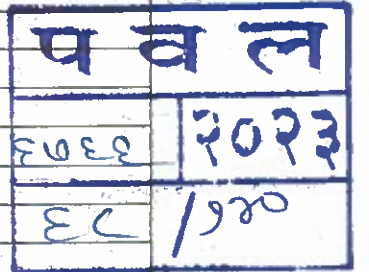 प व ल
६७६६ २०२३
६८ /१२०